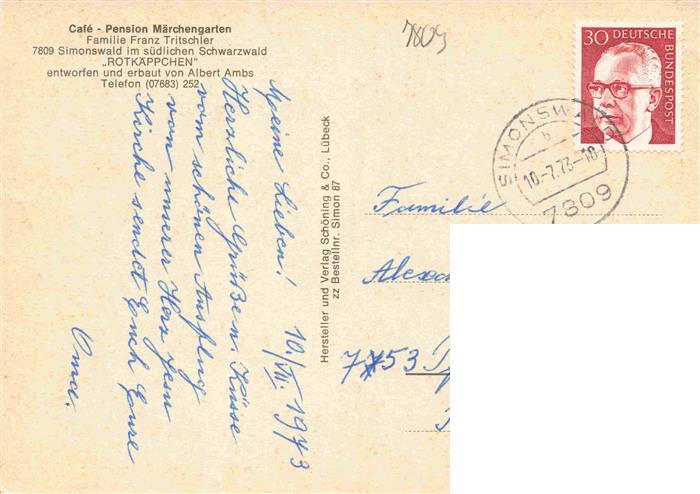 Café - Pension Märchengarten
Familie Franz Tritschler
7809 Simonswald im südlichen Schwarzwald
„ROTKÄPPCHEN"
entworfen und erbaut von Albert Ambs
Telefon (07683) 252
7809
30 DEUTSCHE
BUNDESPOST
SIMONSWALD
b
10.-7.73-18
7809
Meine Lieben! 10./VII. 1973
Herzliche Grüße u. Küsse
vom schönen Ausflug
von unserer Herz Jesu
Kirche sendet Euch Eure
Oma.
Hersteller und Verlag Schöning & Co., Lübeck
zz Bestellnr. Simon 87
Familie
Alexa
7753